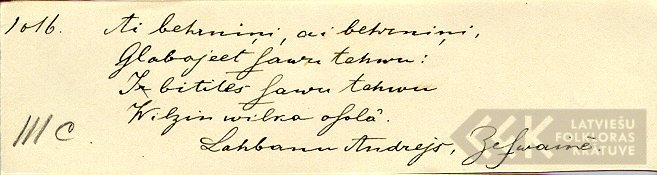 1016. Ai behrniņi, ai behrniņi,
Glabajeet sawu tehwu:
Ir bitites sawu tehwu
Wilzin wilka osolâ.
III C
Lahbanu Andrejs, Zeswainē
LATVIEŠU
FOLKLORAS
KRĀTUVE